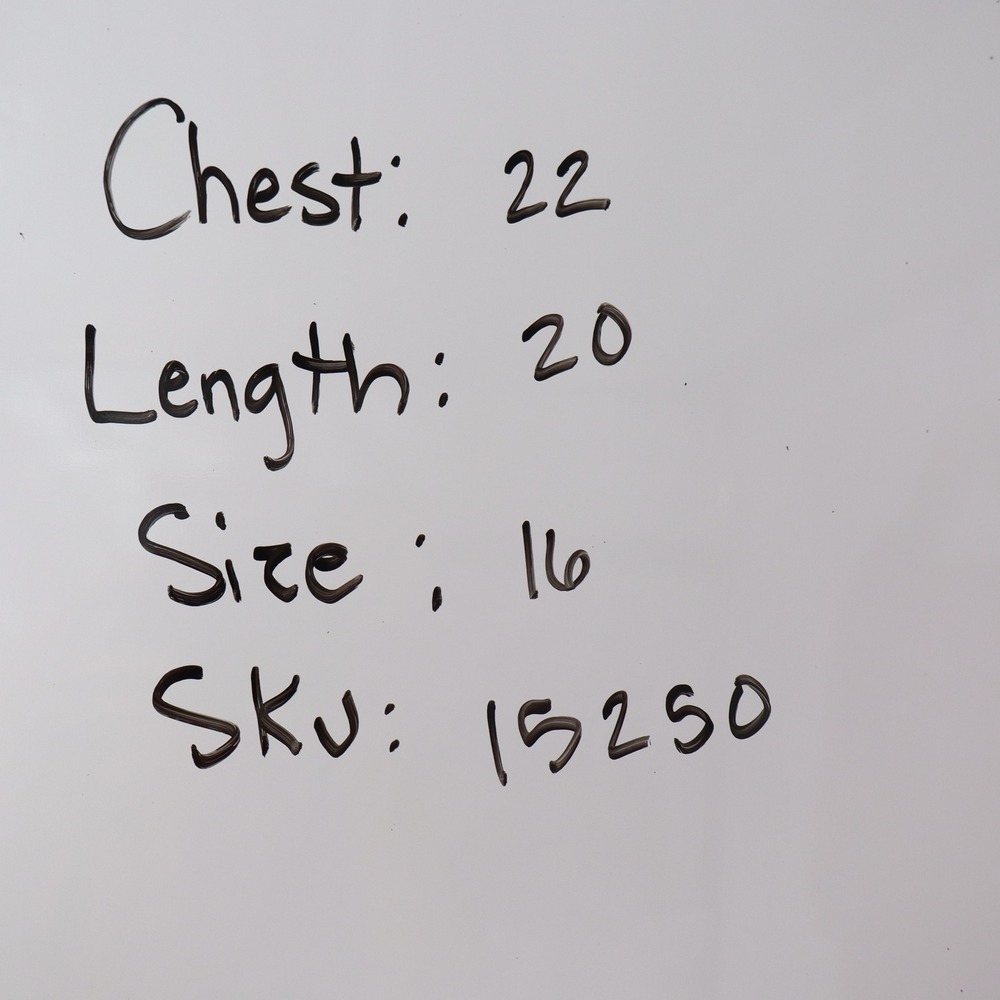 Chest: 22
Length: 20
Size: 16
SKU: 15250